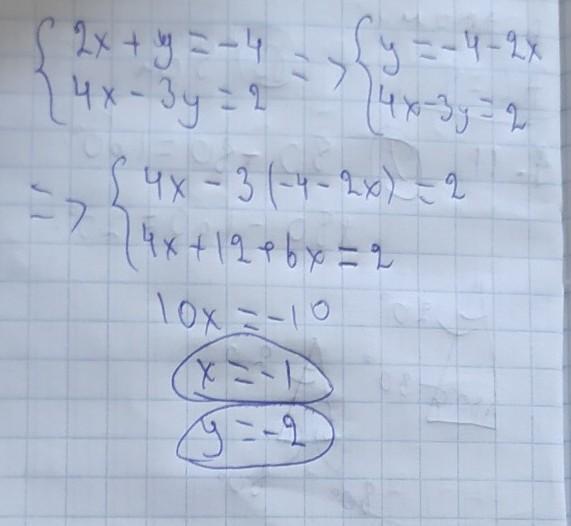 2x + y = -4 => y = -4 - 2x
4x - 3y = 2 4x - 3y = 2
=> 4x - 3(-4 - 2x) = 2
4x + 12 + 6x = 2
10x = -10
x = -1
y = -2